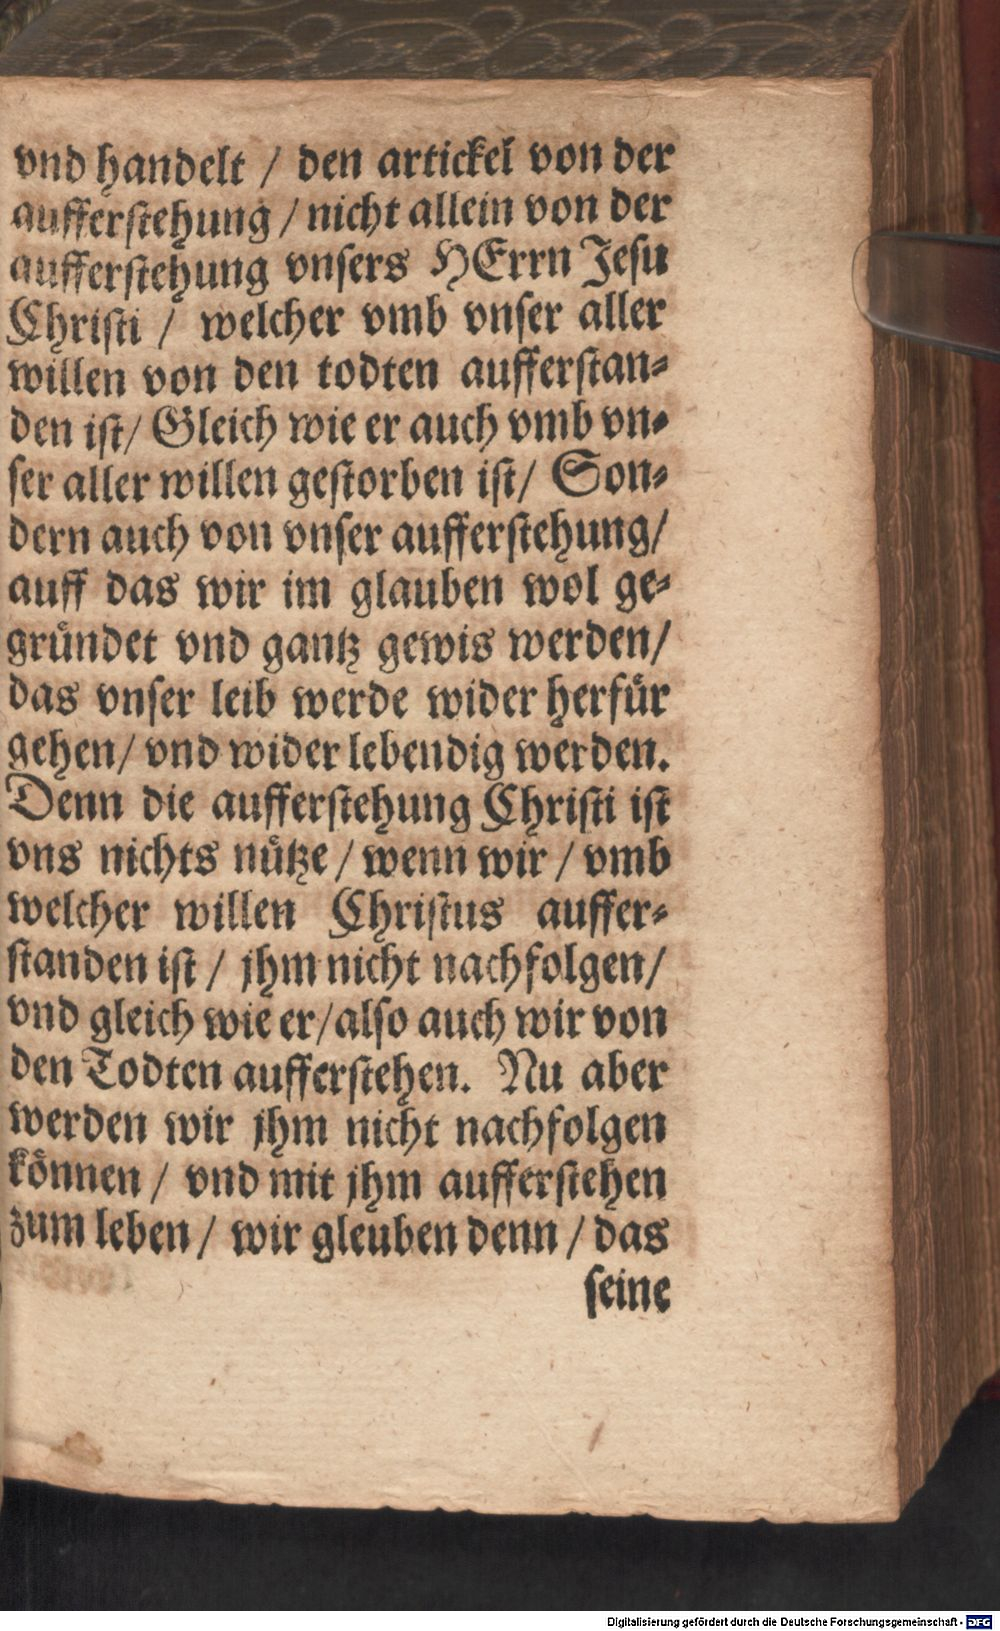 vnd handelt / den artickel von der
aufferstehung / nicht allein von der
aufferstehung vnsers HErrn Jesu
Christi / welcher vmb vnser aller
willen von den todten aufferstan-
den ist / Gleich wie er auch vmb vn-
ser aller willen gestorben ist / Son-
dern auch von vnser aufferstehung /
auff das wir im glauben wol ge-
gründet vnd gantz gewis werden /
das vnser leib werde wider herfür
gehen / vnd wider lebendig werden.
Denn die aufferstehung Christi ist
vns nichts nütze / wenn wir / vmb
welcher willen Christus auffer-
standen ist / jhm nicht nachfolgen /
vnd gleich wie er / also auch wir von
den Todten aufferstehen. Nu aber
werden wir jhm nicht nachfolgen
können / vnd mit jhm aufferstehen
zum leben / wir gleuben denn / das
seine
Digitalisierung gefördert durch die Deutsche Forschungsgemeinschaft - DFG